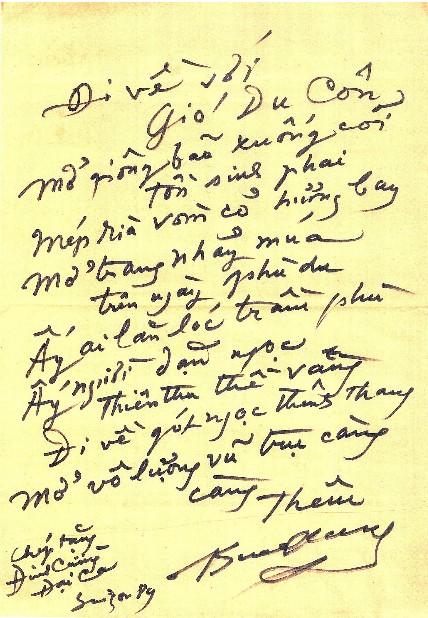 Đi về với
Gió Du Côn
Mở giông bão xuống cõi
tồn sinh phai
Mép rìa vòm cỏ hường bay
Mở trang nhảy múa
trên ngày phù du
Ấy ai lăn lóc trầm phù
Ấy người dạo ngọc
Thiên thu thế vàng
Đi về gót ngọc thênh thang
Mở vô lượng vũ trụ càng
càng thêm
Chép tặng
Đinh Cường
Đại Ca
Saigon 89